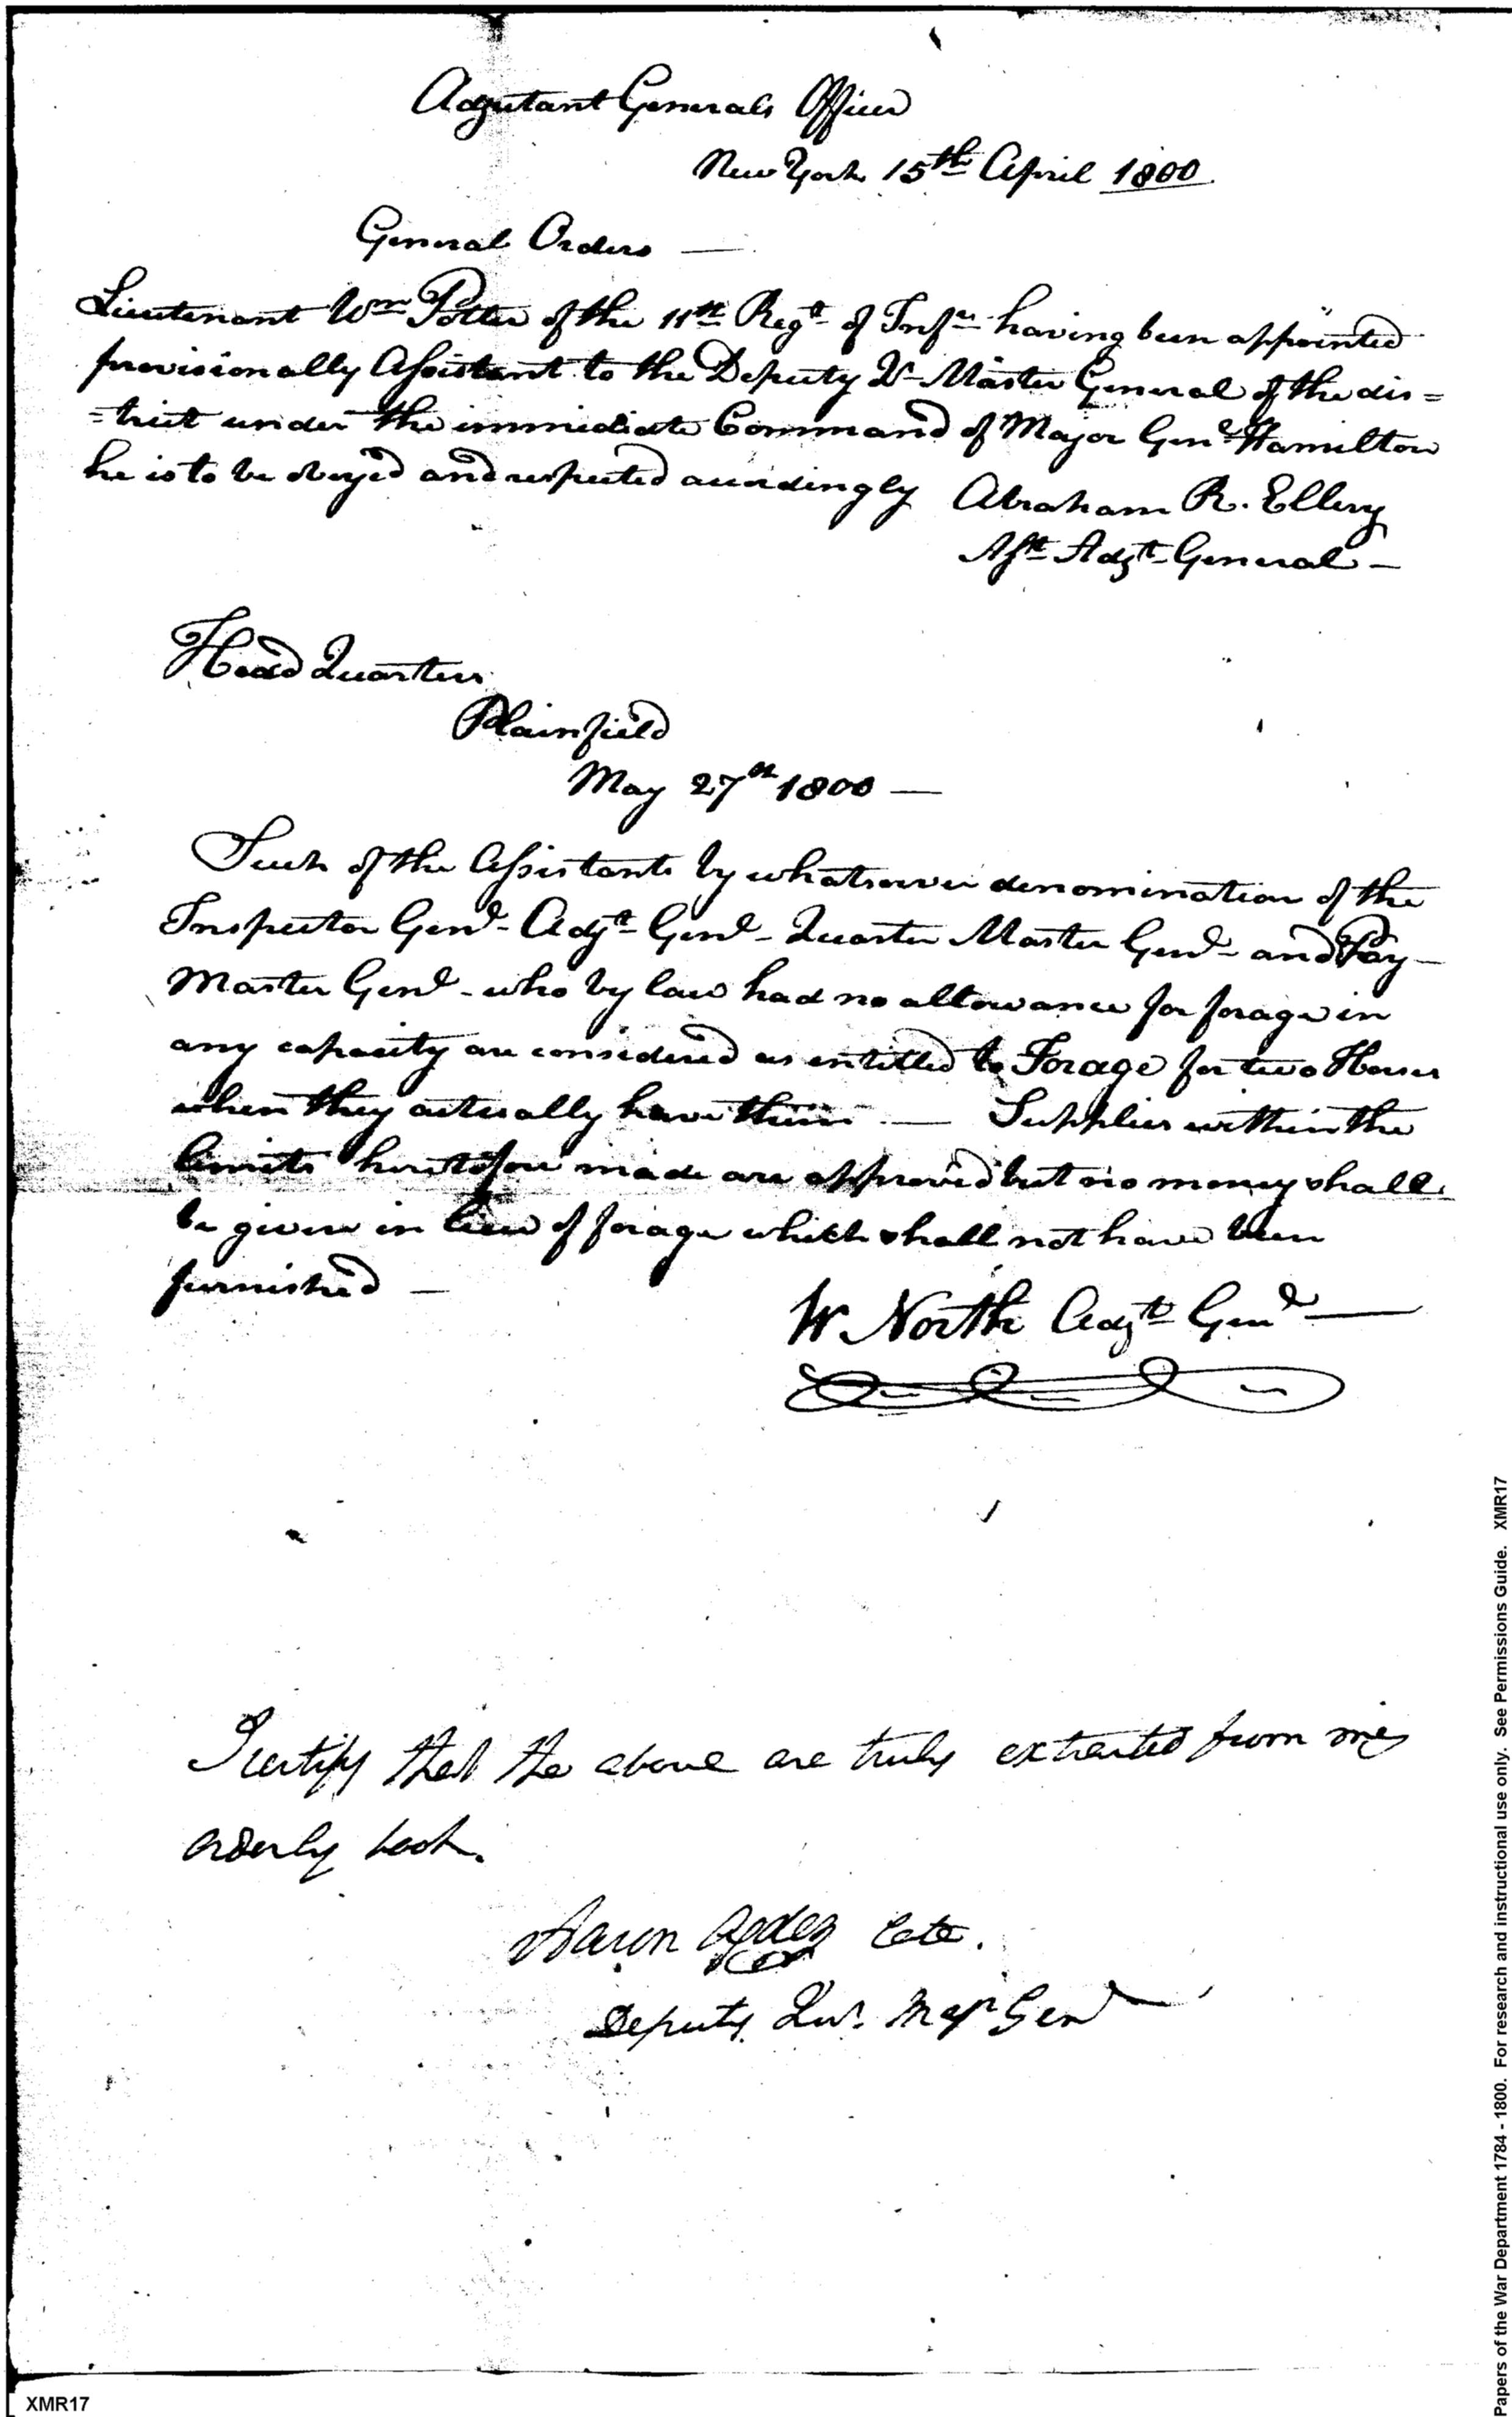 Adjutant Generals Office
New York 15th April 1800
General Orders —
Lieutenant Wm Potter of the 11th Regt of Infy having been appointed
provisionally Assistant to the Deputy Qr Master General of the dis=
=trict under the immediate Command of Major Genl Hamilton
he is to be obeyed and respected accordingly
Abraham R. Ellery
Asst Adjt General —
Head Quarters
Plainfield
May 27th 1800 —
Such of the Assistants by whatsoever denomination of the
Inspector Genl - Adjt Genl - Quarter Master Genl - and Pay—
Master Genl - who by law had no allowance for forage in
any capacity are considered as entitled to Forage for two Horses
when they actually have them — Supplies within the
limits heretofore made are approved but no money shall
be given in lieu of forage which shall not have been
furnished —
W North Adjt Genl —
I certify that the above are truly extracted from my
orderly book.
Aaron Ogden late.
Deputy Qur. Masr Genl
XMR17
Papers of the War Department 1784 - 1800. For research and instructional use only. See Permissions Guide. XMR17